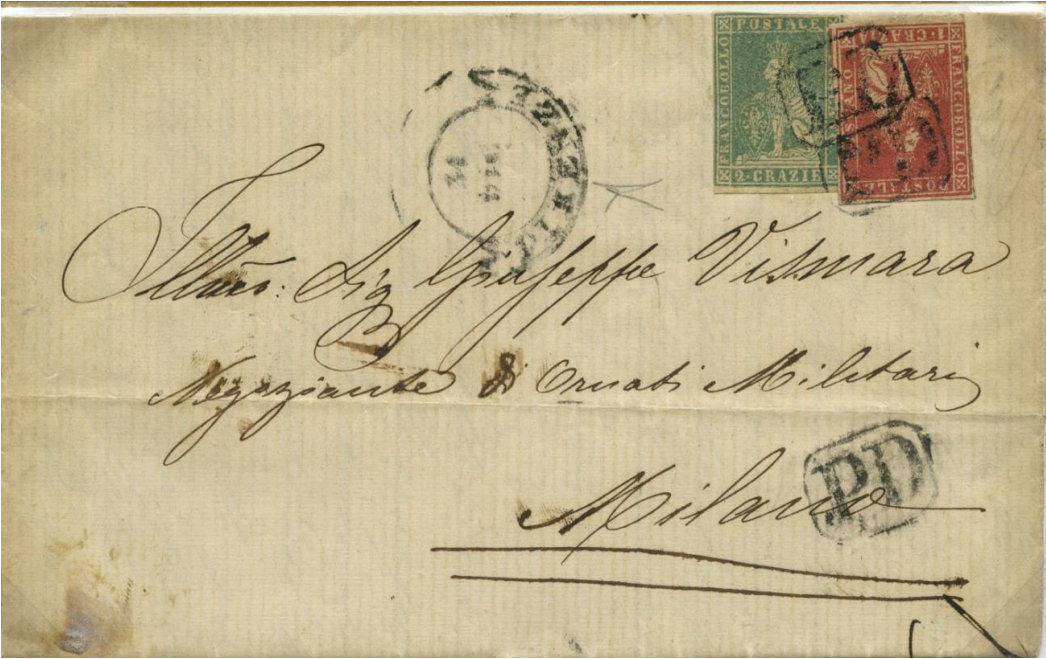 FRANCOBOLLO POSTALE
2 CRAZIE
FRANCOBOLLO POSTALE
1 CRAZIA
FIRENZE
PD
Sig Giuseppe Vismara
Negoziante di Ornati Militari
Milano
PD